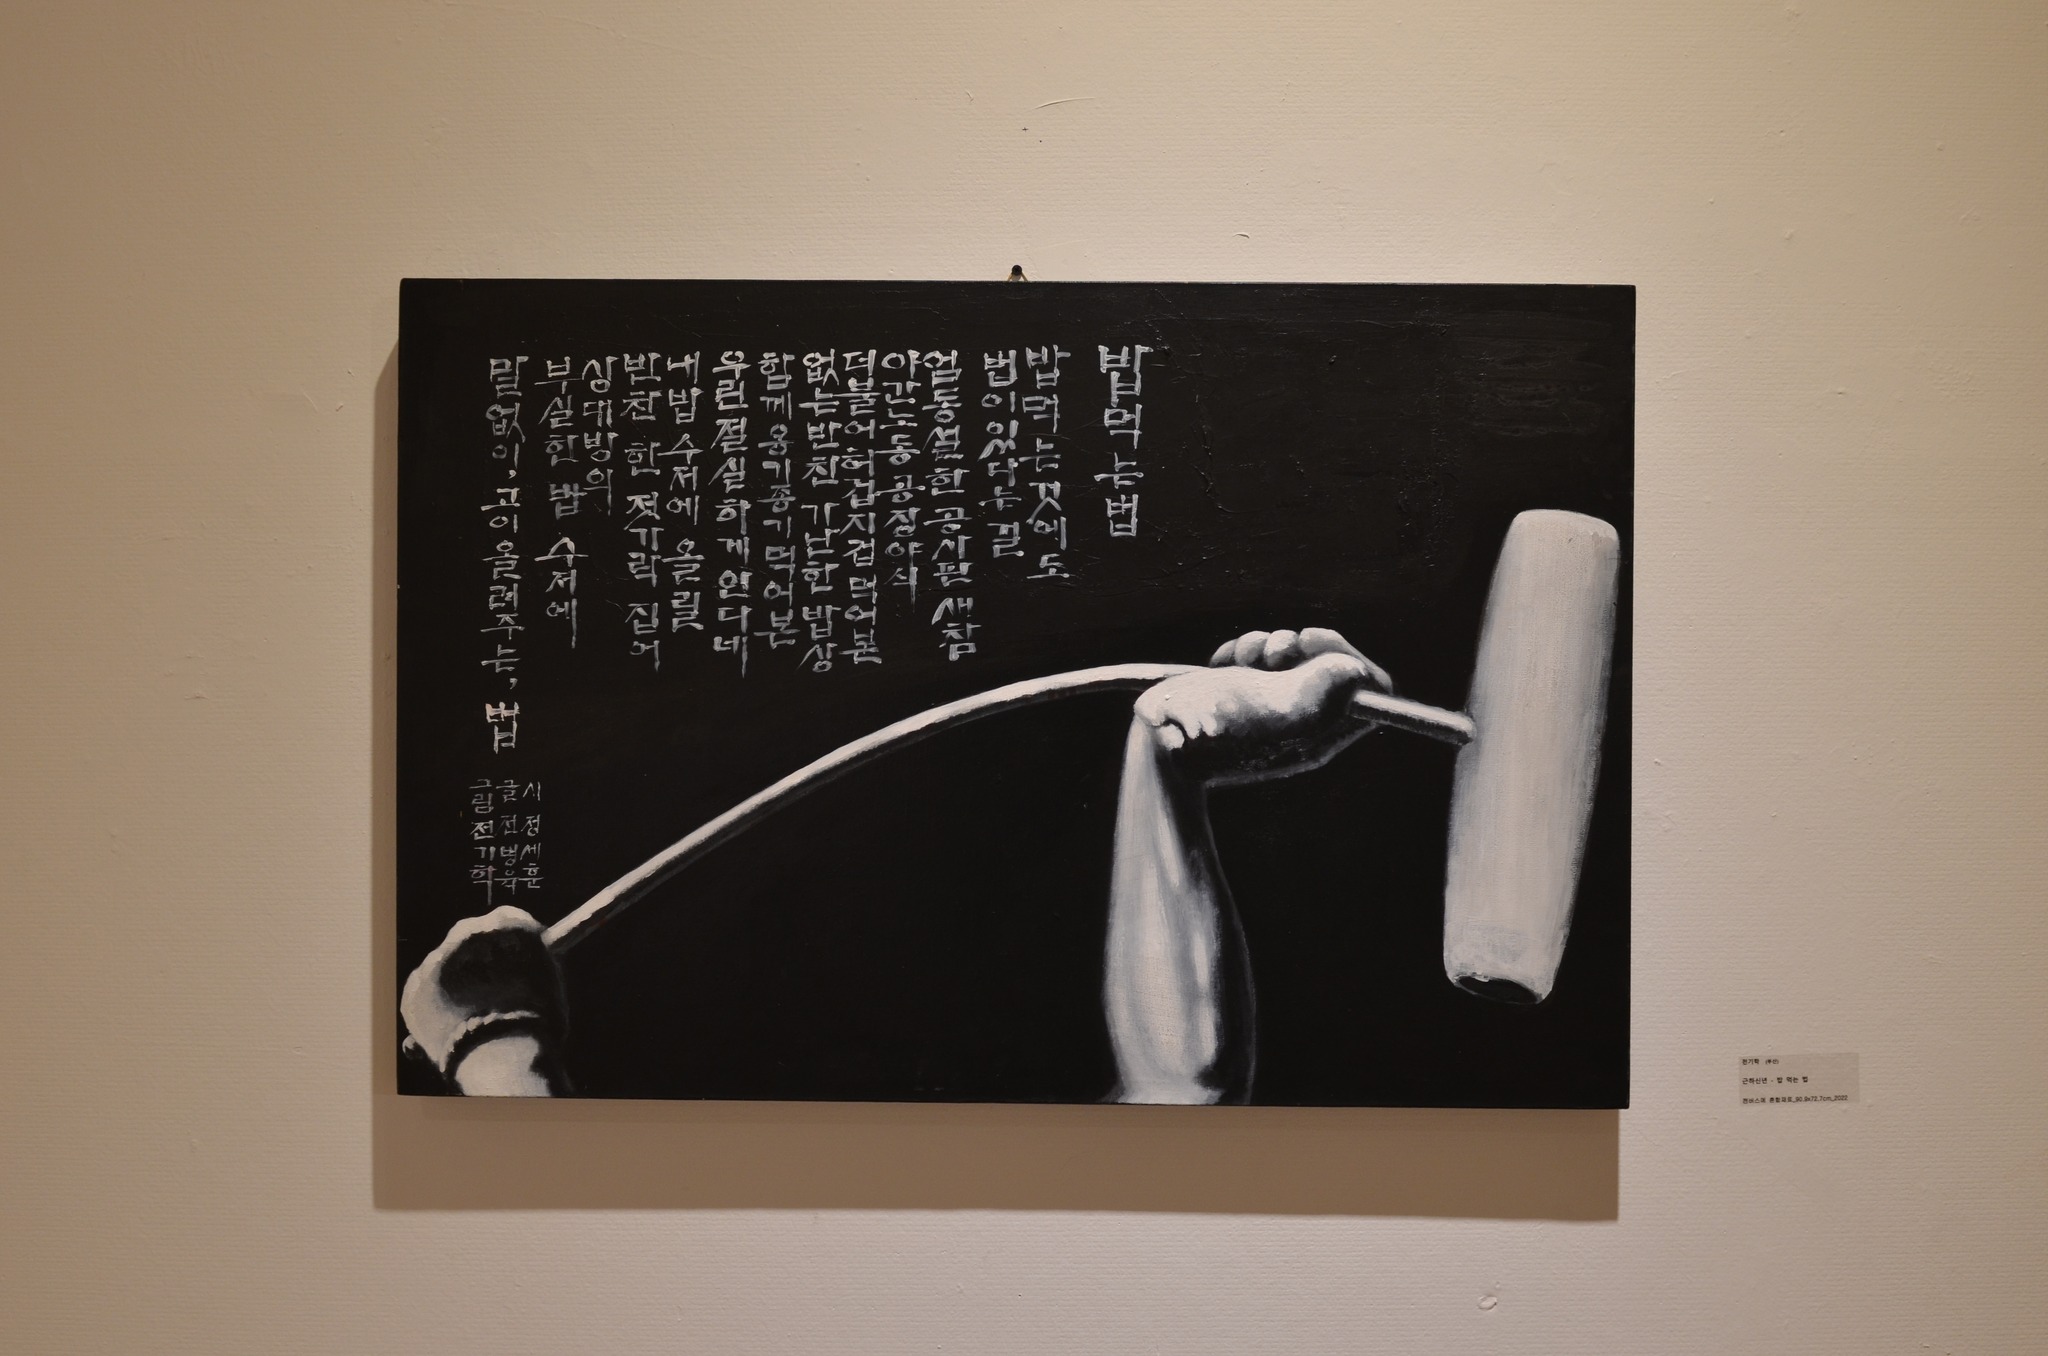 밥 먹는 법
밥 먹는 것에도
법이 있다는 걸
엄동설한 공사판 새참
야간노동 공장야식
더불어 허겁지겁 먹어본
없는 반찬 가난한 밥상
함께 옹기종기 먹어본
우린 절실하게 안다네
내 밥 수저에 올릴
반찬 한 젓가락 집어
상대방의
부실한 밥 수저에
말없이, 고이 올려주는, 법
시 정세훈
글 전병욱
그림 전기학
전기학 (부산)
근하신년 - 밥 먹는 법
캔버스에 혼합재료_90.9x72.7cm_2022